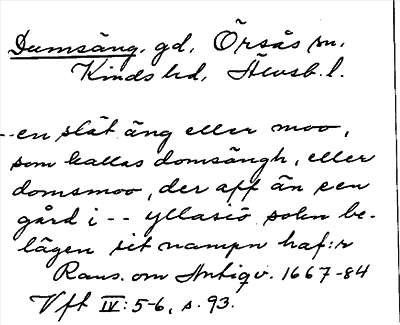 Dumsäng, gd, Örsås sn,
Kinds hd, Älvsb. l.
--en slät äng eller moo,
som kallas domsängh, eller
domsmoo, der aff än een
gård i -- yllasiö sokn be-
lägen sit nampn haf:r
Rans. om Antiqv. 1667-84
Vft IV: 5-6, s. 93.